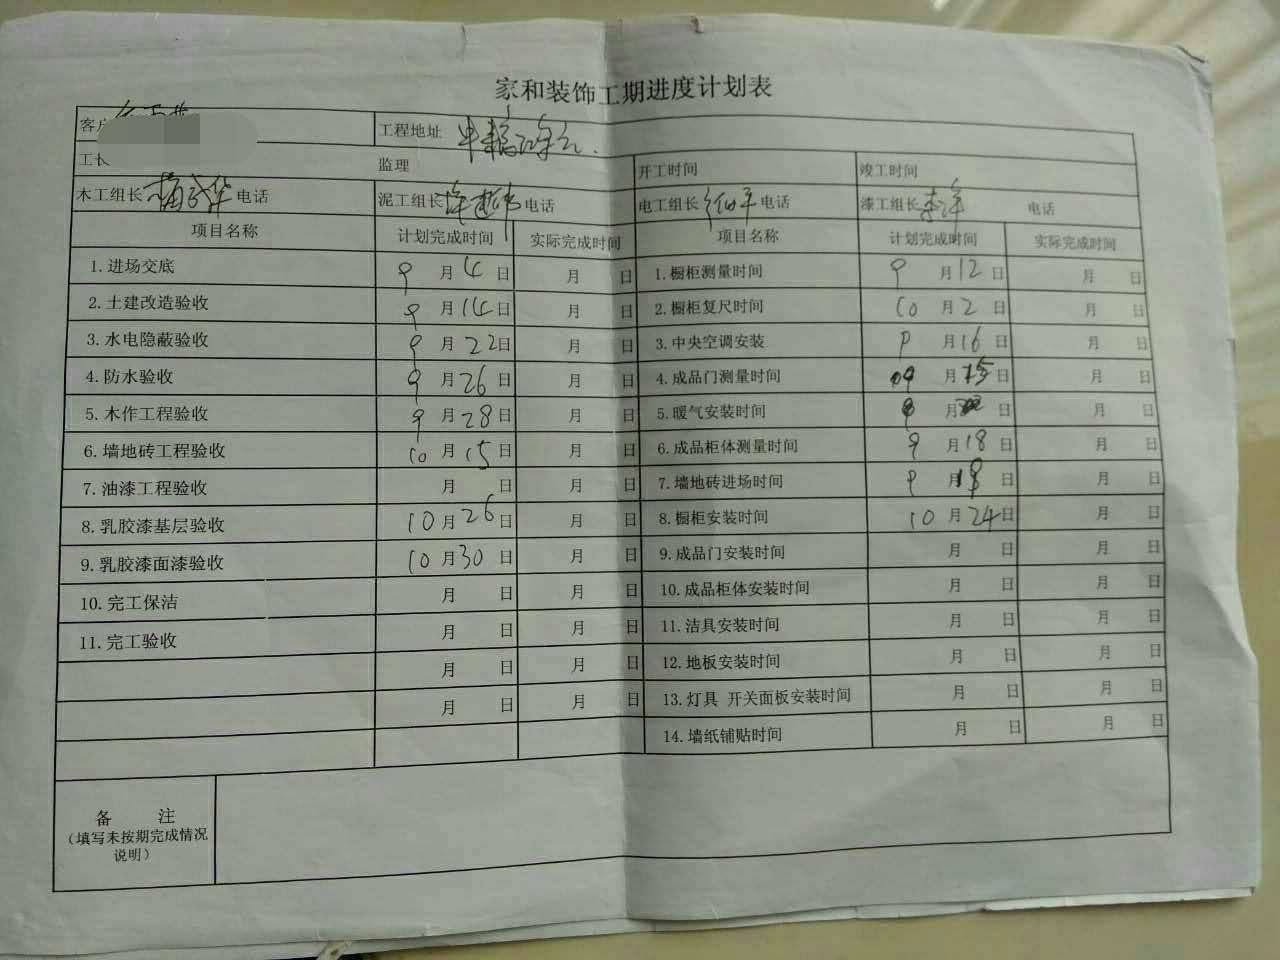 家和装饰工期进度计划表
客户 工程地址
工长 监理 开工时间 竣工时间
木工组长 电话 泥工组长 电话 电工组长 电话 漆工组长 电话
项目名称 计划完成时间 实际完成时间 项目名称 计划完成时间 实际完成时间
1.进场交底 9月4日 月 日 1.橱柜测量时间 9月12日 月 日
2.土建改造验收 9月14日 月 日 2.橱柜复尺时间 10月2日 月 日
3.水电隐蔽验收 9月22日 月 日 3.中央空调安装 9月16日 月 日
4.防水验收 9月26日 月 日 4.成品门测量时间 月 日 月 日
5.木作工程验收 9月28日 月 日 5.暖气安装时间 月 日 月 日
6.墙地砖工程验收 10月15日 月 日 6.成品柜体测量时间 9月18日 月 日
7.油漆工程验收 月 日 月 日 7.墙地砖进场时间 9月 日 月 日
8.乳胶漆基层验收 10月26日 月 日 8.橱柜安装时间 10月24日 月 日
9.乳胶漆面漆验收 10月30日 月 日 9.成品门安装时间 月 日 月 日
10.完工保洁 月 日 月 日 10.成品柜体安装时间 月 日 月 日
11.完工验收 月 日 月 日 11.洁具安装时间 月 日 月 日
月 日 月 日 12.地板安装时间 月 日 月 日
月 日 月 日 13.灯具 开关面板安装时间 月 日 月 日
14.墙纸铺贴时间 月 日 月 日
备 注
（填写未按期完成情况
说明）